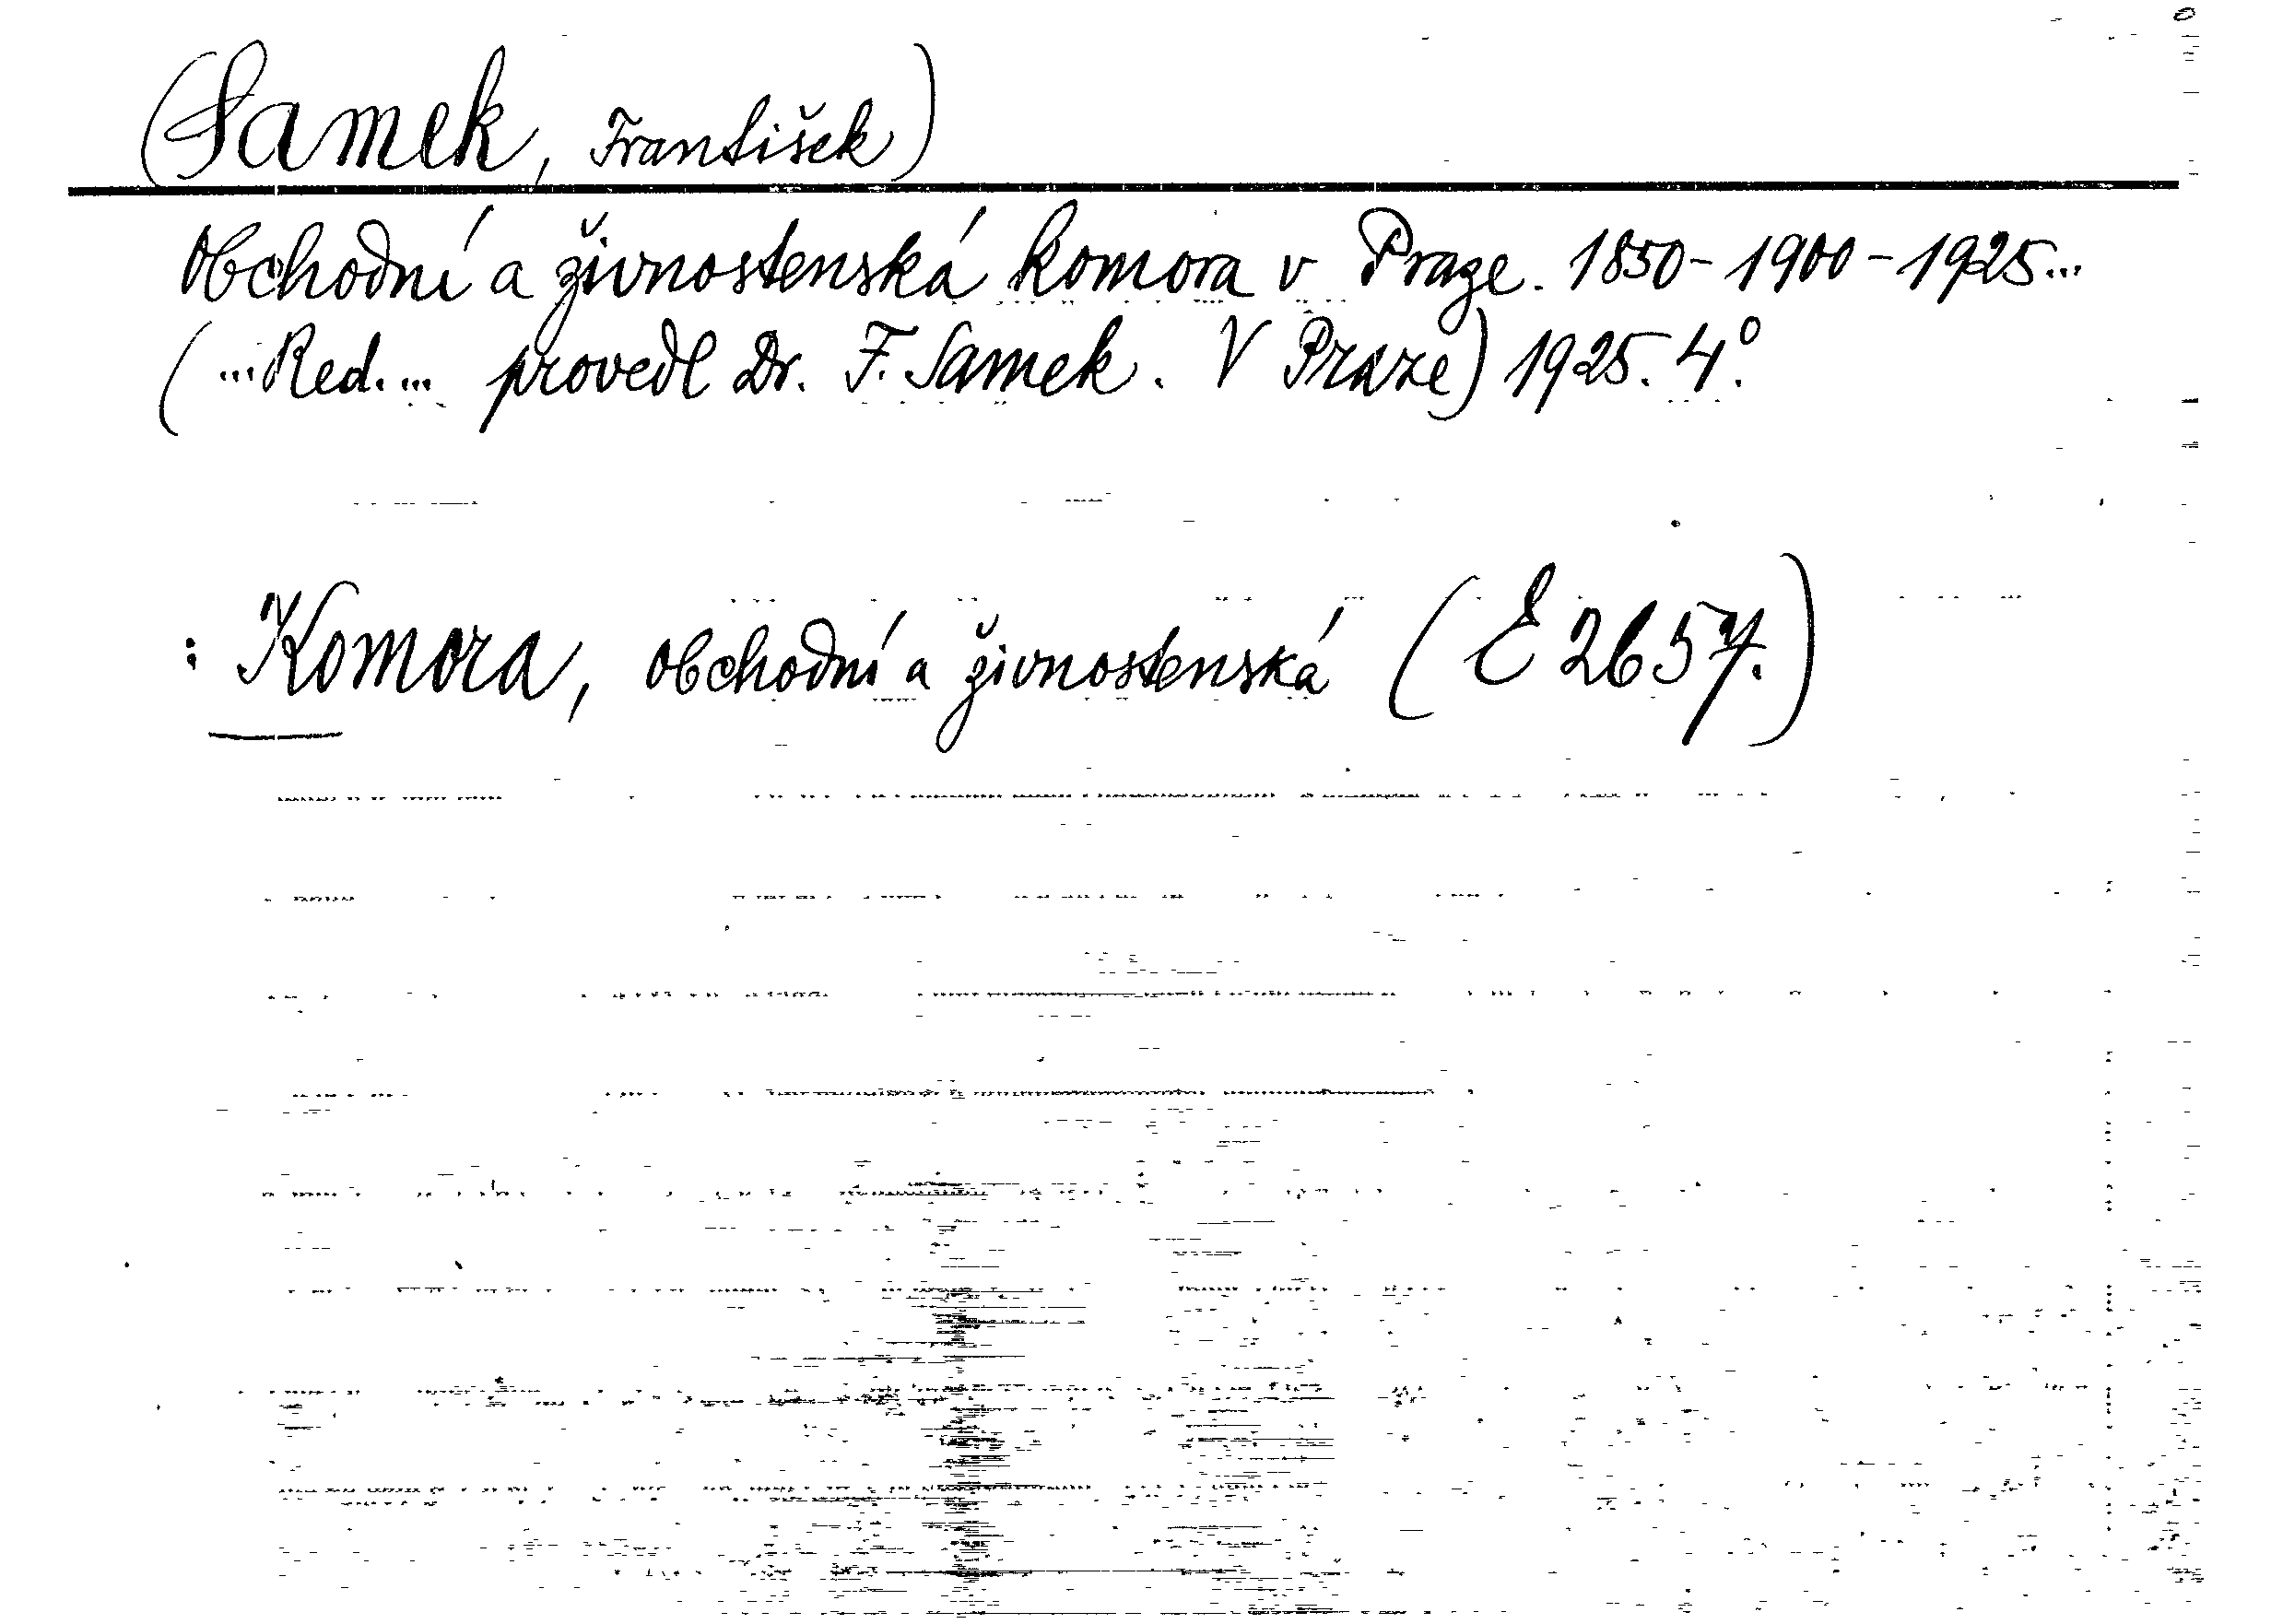 (Samek, František)
Obchodní a živnostenská komora v Praze. 1850-1900-1925...
(...Red.... provedl Dr. F. Samek. V Praze) 1925. 4°.
: Komora, obchodní a živnostenská (E 2657.)